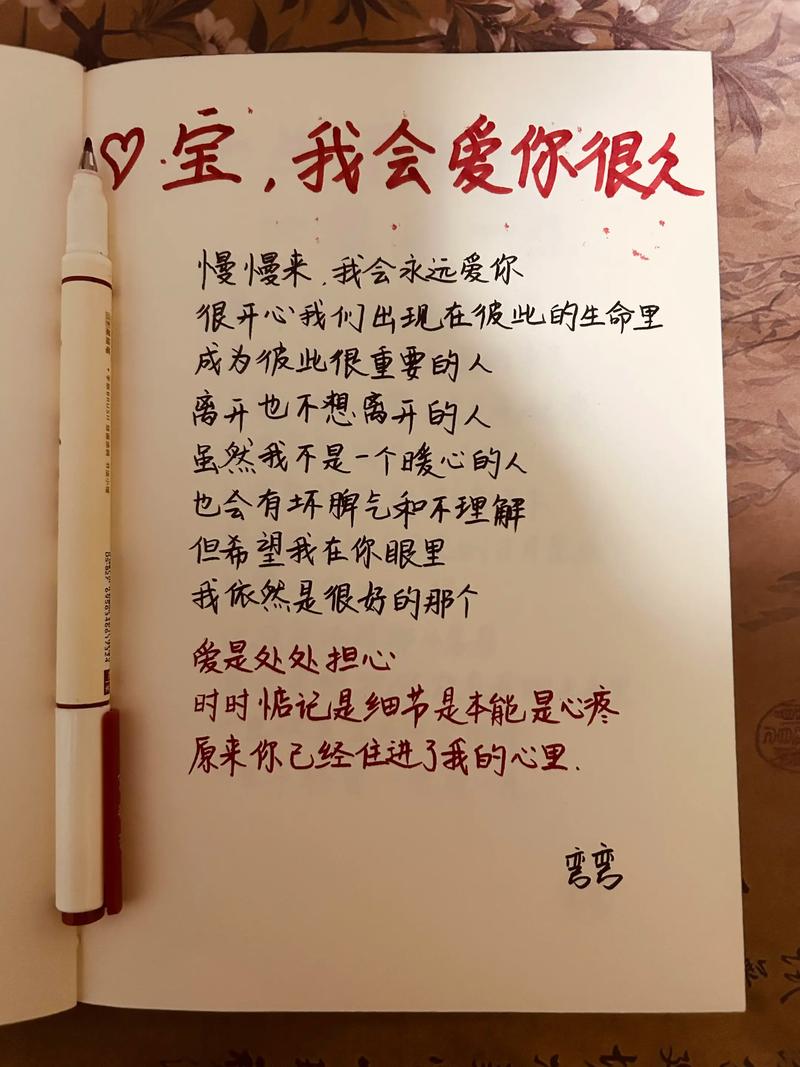 ♡宝,我会爱你很久
慢慢来,我会永远爱你
很开心我们出现在彼此的生命里
成为彼此很重要的人
离开也不想离开的人
虽然我不是一个暖心的人
也会有坏脾气和不理解
但希望我在你眼里
我依然是很好的那个
爱是处处担心
时时惦记是细节是本能是心疼
原来你已经住进了我的心里.
弯弯